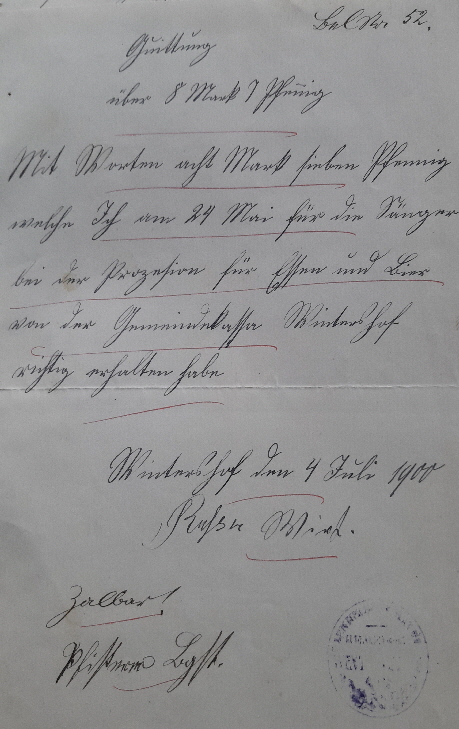 Bel Nr. 52.
Quittung
über 8 Mark 7 Pfennig
Mit Worten acht Mark sieben Pfennig
welche Ich am 24 Mai für die Sänger
bei der Prozesion für Essen und Bier
von der Gemeindekassa Wintershof
richtig erhalten habe
Wintershof den 4 Juli 1900
Wirt.
Zalbar!
Pfisterer Bgst.